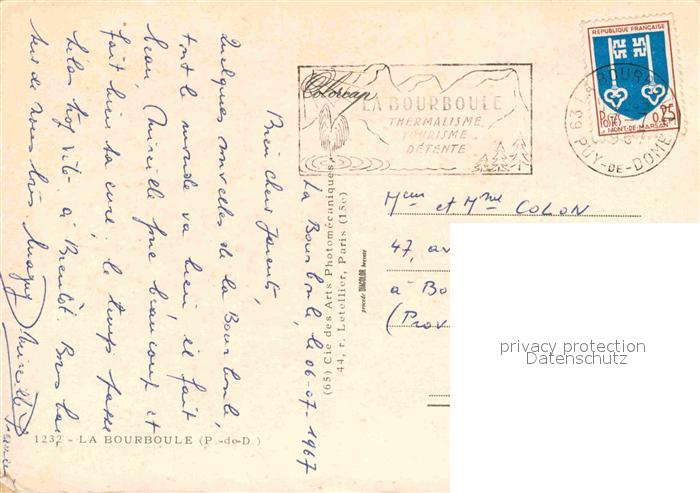 La Bourboule, le 06-07-1967
Bien chers parents,
Quelques nouvelles de la Bourboule,
tout le monde va bien, il fait
beau, Mireille joue beaucoup et
fait bien sa cure. le temps passe
hélas trop vite à Bientôt. Bons bai
sers de nous trois. Maguy
Mireille
REPUBLIQUE FRANÇAISE
POSTES 0,25
MONT-DE-MARSAN
63 LA BOURBOULE
PUY-DE-DOME
Colorcap
LA BOURBOULE
THERMALISME
TOURISME
DÉTENTE
Mr et Mme COLON
47, av
à Bo
(Prov
privacy protection
Datenschutz
(65) Cie des Arts Photomécaniques
44, r. Letellier, Paris (15e)
procédé DIACOLOR breveté
1232 - LA BOURBOULE (P.-de-D.)